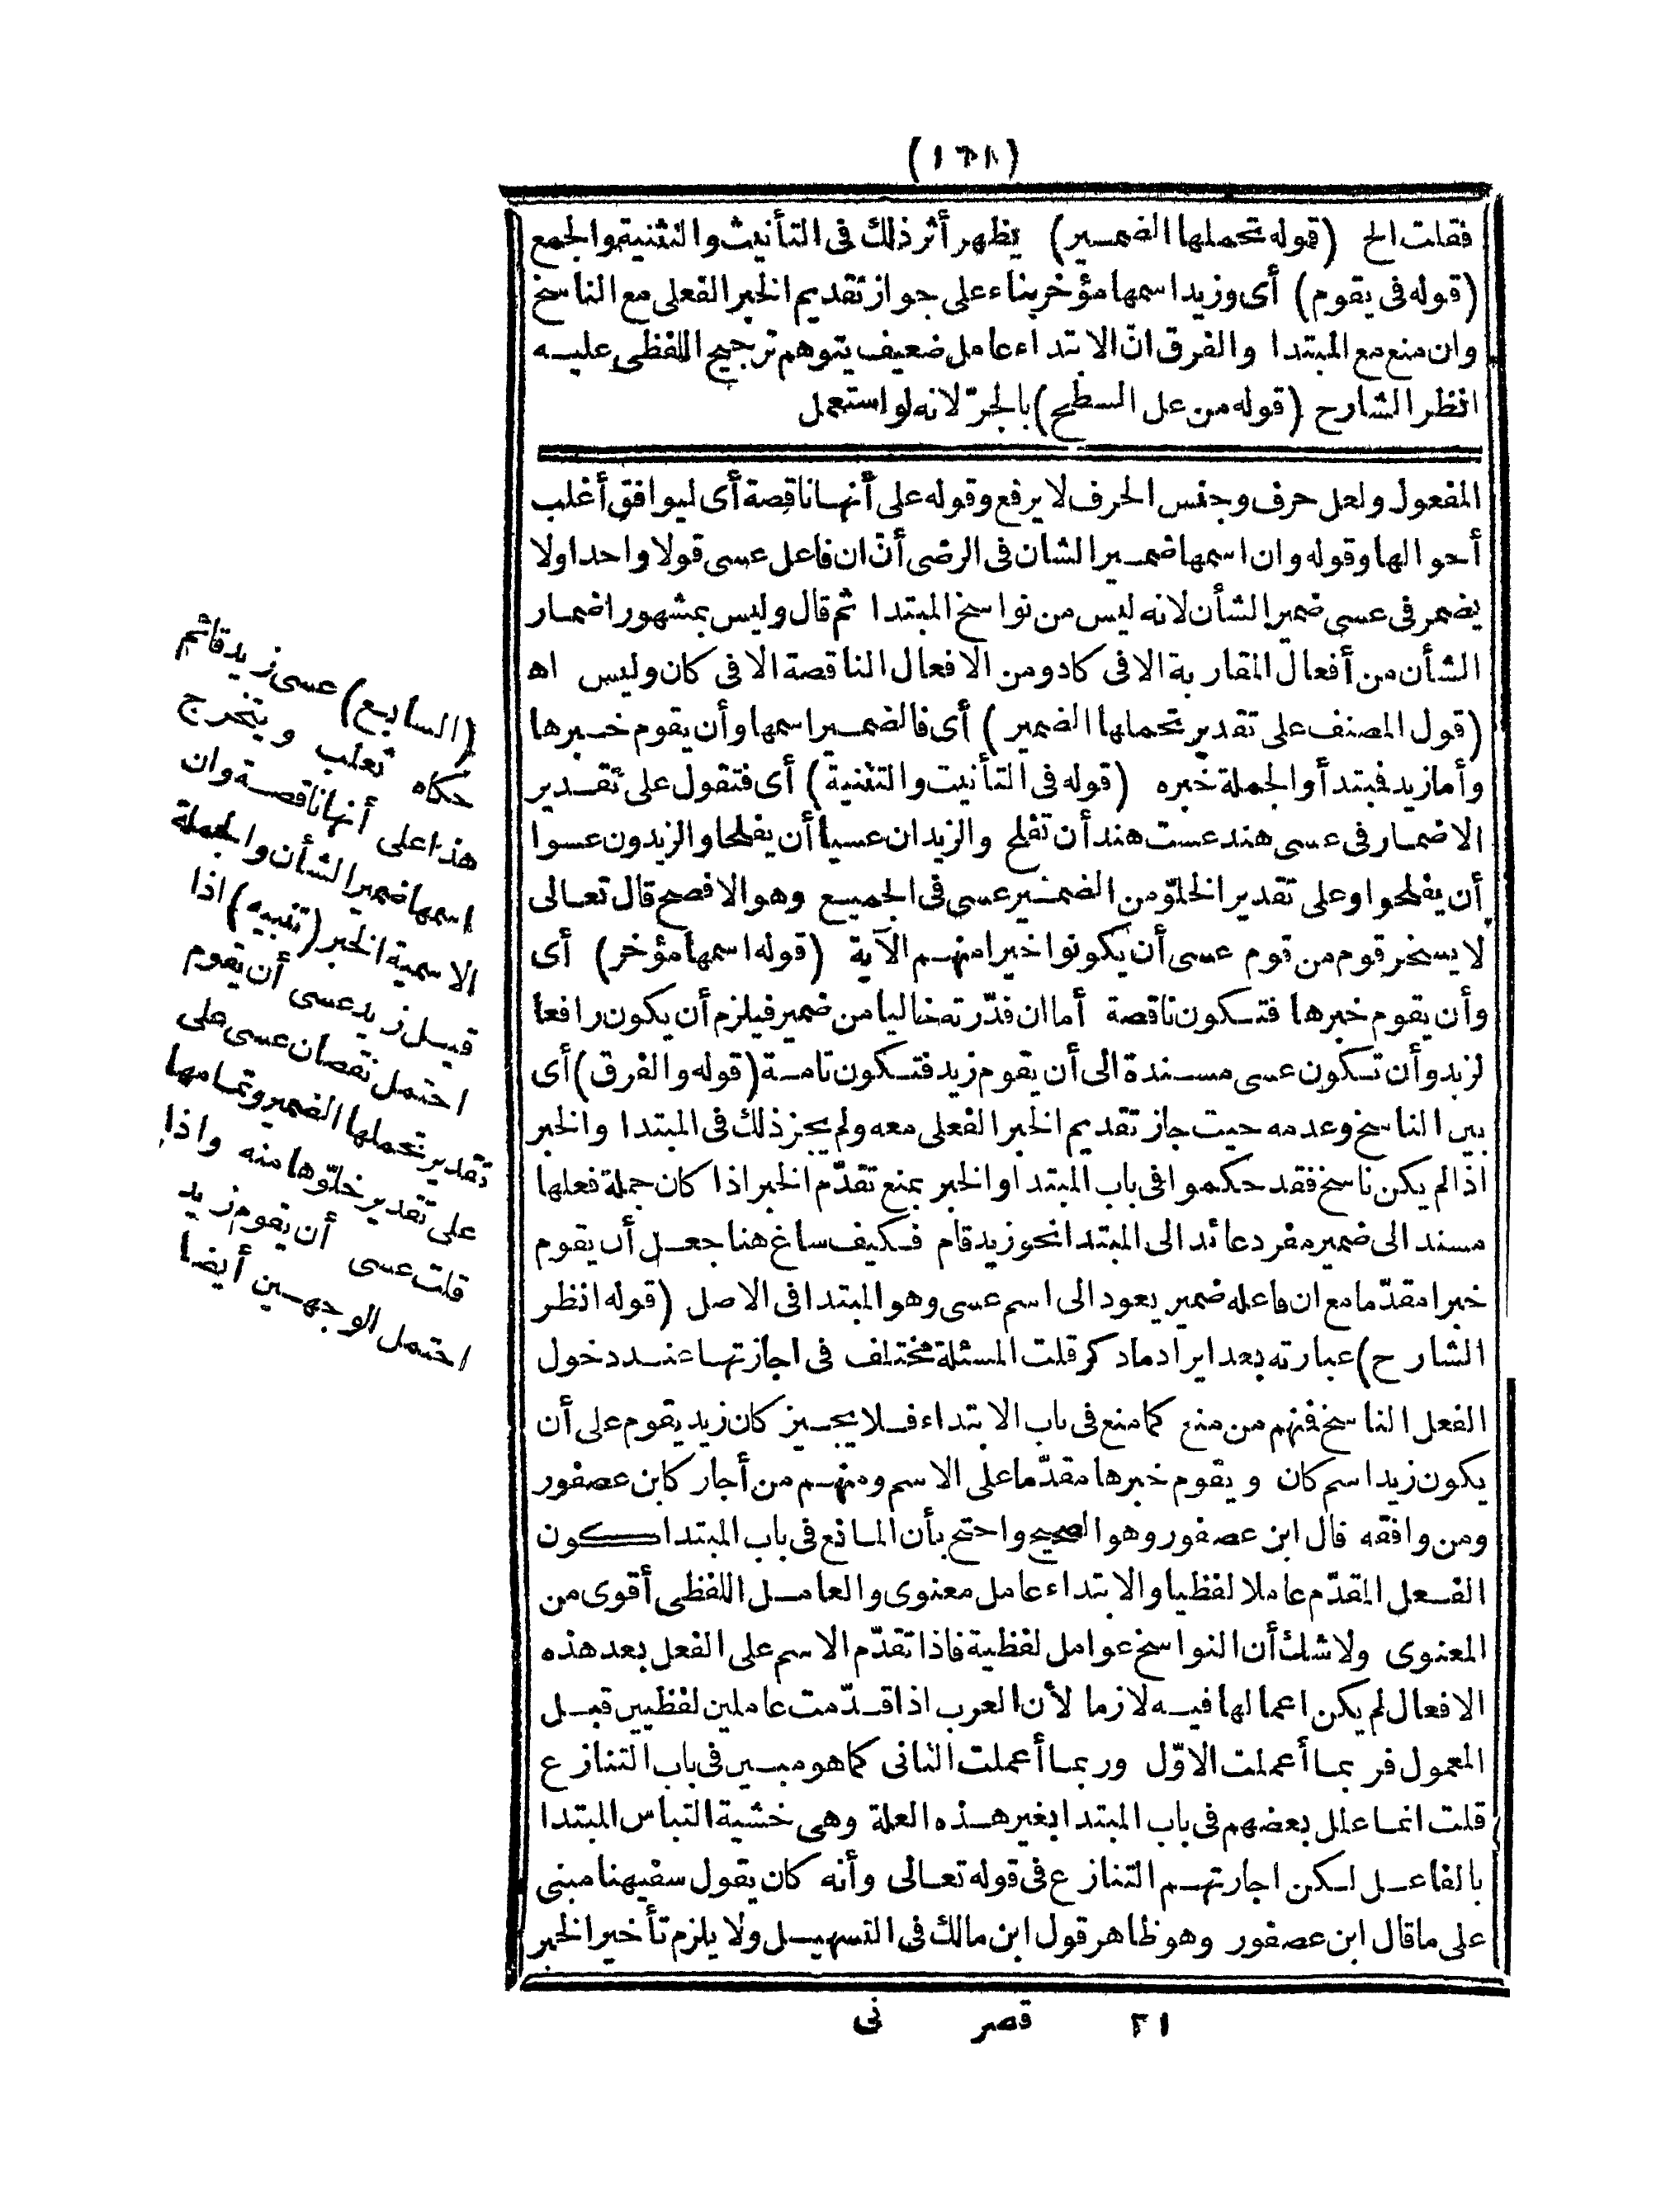 (١٦١)
فقلت الخ (قوله تحملها الضمير) يظهر أثر ذلك فى التأنيث والتثنية والجمع
(قوله فى يقوم) أى وزيد اسمها مؤخر بناء على جواز تقديم الخبر الفعلى مع الناسخ
وان منع مع المبتدا والفرق انّ الابتداء عامل ضعيف يتوهم ترجيح اللفظى عليه
انظر الشارح (قوله من عل السطح) بالجرّ لانه لو استعمل
المفعول ولعل حرف وجنس الحرف لا يرفع وقوله على أنها ناقصة أى ليوافق أغلب
أحوالها وقوله وان اسمها ضمير الشان فى الرضى أنّ ان فاعل عسى قولا واحدا ولا
يضمر فى عسى ضمير الشأن لانه ليس من نواسخ المبتدا ثم قال وليس بمشهور اضمار
الشأن من أفعال المقاربة الا فى كاد ومن الافعال الناقصة الا فى كان وليس اه
(قول المصنف على تقدير تحملها الضمير) أى فالضمير اسمها وأن يقوم خبرها
وأما زيد فمبتدأ والجملة خبره (قوله فى التأنيث والتثنية) أى فتقول على تقدير
الاضمار فى عسى هند عست هند أن تفلح والزيدان عسيا أن يفلحا والزيدون عسوا
أن يفلحوا وعلى تقدير الخلوّ من الضمير عسى فى الجميع وهو الافصح قال تعالى
لا يسخر قوم من قوم عسى أن يكونوا خيرا منهم الآية (قوله اسمها مؤخر) أى
وأن يقوم خبرها فتكون ناقصة أما ان قدّرته خاليا من ضمير فيلزم أن يكون رافعا
لزيد وأن تكون عسى مسندة الى أن يقوم زيد فتكون تامة (قوله والفرق) أى
بين الناسخ وعدمه حيث جاز تقديم الخبر الفعلى معه ولم يجز ذلك فى المبتدا والخبر
اذا لم يكن ناسخ فقد حكموا فى باب المبتدا والخبر بمنع تقدّم الخبر اذا كان جملة فعلها
مسند الى ضمير مفرد عائد الى المبتدا نحو زيد قام فكيف ساغ هنا جعل أن يقوم
خبرا مقدّما مع ان فاعله ضمير يعود الى اسم عسى وهو المبتدا فى الاصل (قوله انظر
الشارح) عبارته بعد ايراد ماذكر قلت المسئلة مختلف فى اجازتها عند دخول
الفعل الناسخ فمنهم من منع كما منع فى باب الابتداء فلا يجيز كان زيد يقوم على أن
يكون زيد اسم كان ويقوم خبرها مقدّما على الاسم ومنهم من أجاز كابن عصفور
ومن وافقه قال ابن عصفور وهو الصحيح واحتج بأن المانع فى باب المبتدا كون
الفعل المقدّم عاملا لفظيا والابتداء عامل معنوى والعامل اللفظى أقوى من
المعنوى ولا شك أن النواسخ عوامل لفظية فاذا تقدّم الاسم على الفعل بعد هذه
الافعال لم يكن اعمالها فيه لازما لأن العرب اذا قدّمت عاملين لفظيين قبل
المعمول فربما أعملت الاوّل وربما أعملت الثانى كما هو مبين فى باب التنازع
قلت انما علل بعضهم فى باب المبتدا بغير هذه العلة وهى خشية التباس المبتدا
بالفاعل لكن اجازتهم التنازع فى قوله تعالى وأنه كان يقول سفيهنا مبنى
على ما قال ابن عصفور وهو ظاهر قول ابن مالك فى التسهيل ولا يلزم تأخير الخبر
(السابع) عسى زيد قائم
حكاه ثعلب ويتخرج
هذا على أنها ناقصة وان
اسمها ضمير الشأن والجملة
الاسمية الخبر (تنبيه) اذا
قيل زيد عسى أن يقوم
احتمل نقصان عسى على
تقدير تحملها الضمير وتمامها
على تقدير خلوّها منه واذا
قلت عسى أن يقوم زيد
احتمل الوجهين أيضا
٢١ قصر نى